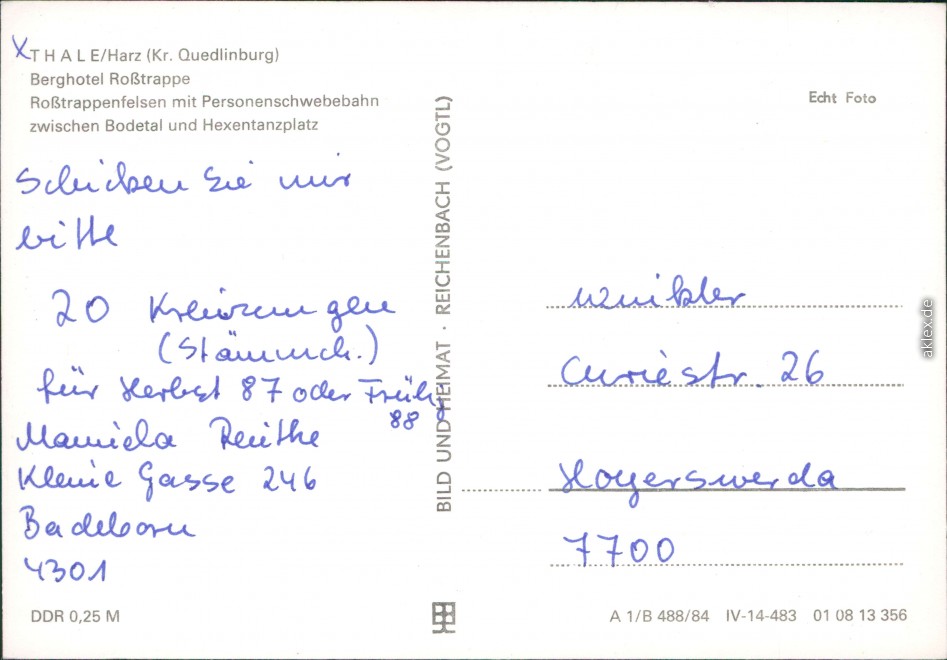 X THALE/Harz (Kr. Quedlinburg)
Berghotel Roßtrappe
Roßtrappenfelsen mit Personenschwebebahn
zwischen Bodetal und Hexentanzplatz
Schicken Sie mir
bitte
20 Kreuzungen
(Stämmch.)
für Herbst 87 oder Frühj.
88
Manuela Reuthe
Kleine Gasse 246
Badeborn
4301
DDR 0,25 M
BILD UND HEIMAT · REICHENBACH (VOGTL)
Echt Foto
Winkler
Curiestr. 26
Hoyerswerda
7700
A 1/B 488/84 IV-14-483 01 08 13 356
aklex.de